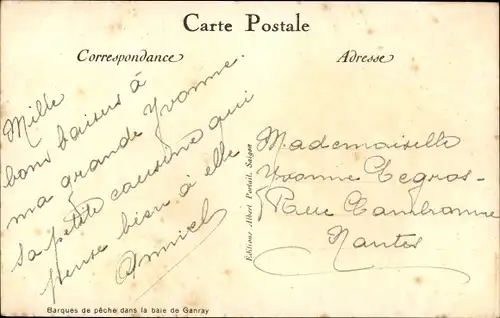 Carte Postale
Correspondance
Adresse
Mille
bons baisers à
ma grande Yvonne.
sa petite cousine qui
pense bien à elle
Annick
Editions Albert Portail, Saigon
Mademoiselle
Yvonne Legros
Rue Cambronne
Nantes
Barques de pêche dans la baie de Ganray